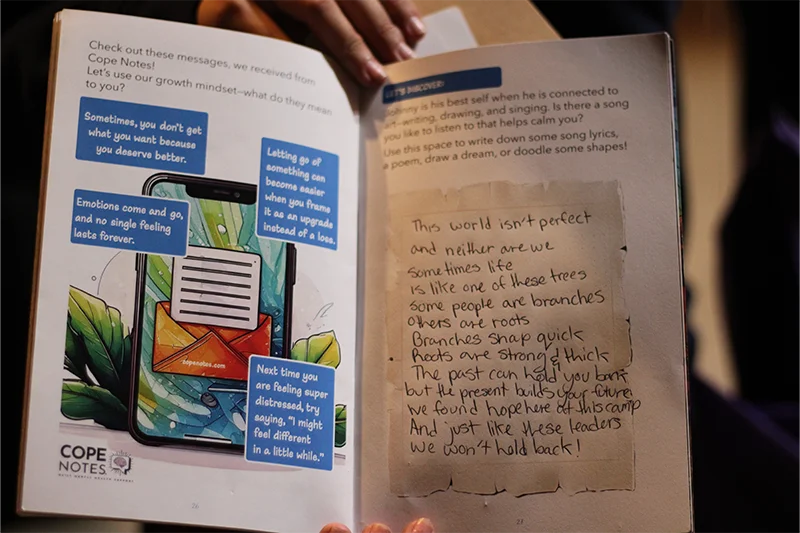 Check out these messages, we received from
Cope Notes!
Let's use our growth mindset—what do they mean
to you?
Sometimes, you don't get
what you want because
you deserve better.
Letting go of
something can
become easier
when you frame
it as an upgrade
instead of a loss.
Emotions come and go,
and no single feeling
lasts forever.
copenotes.com
Next time you
are feeling super
distressed, try
saying, "I might
feel different
in a little while."
COPE
NOTES
DAILY MENTAL HEALTH SUPPORT
26
LET'S DISCOVER:
Johnny is his best self when he is connected to
art—writing, drawing, and singing. Is there a song
you like to listen to that helps calm you?
Use this space to write down some song lyrics,
a poem, draw a dream, or doodle some shapes!
This world isn't perfect
and neither are we
sometimes life
is like one of these trees
some people are branches
others are roots
Branches snap quick
Roots are strong & thick
The past can hold you back
but the present builds your future
we found hope here at this camp
And just like these leaders
we won't hold back!
27